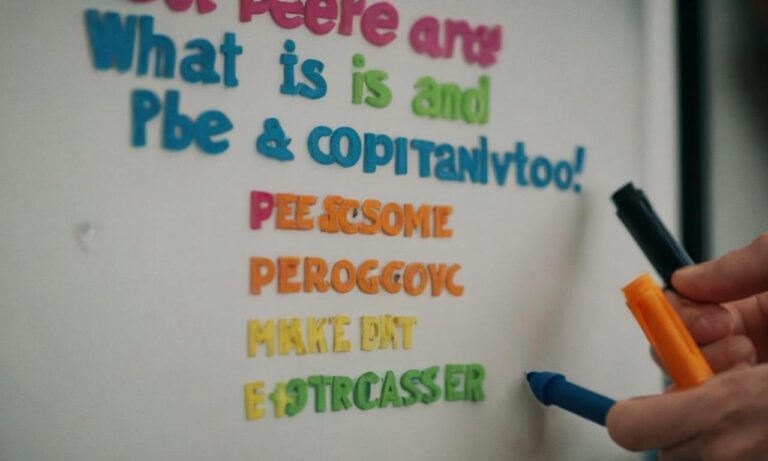 peere are
What is is and
Pbe & COPITanlvtoo!
PEESCSOME
PEROGCOYC
MAKE DAT
E+9TRCASSER